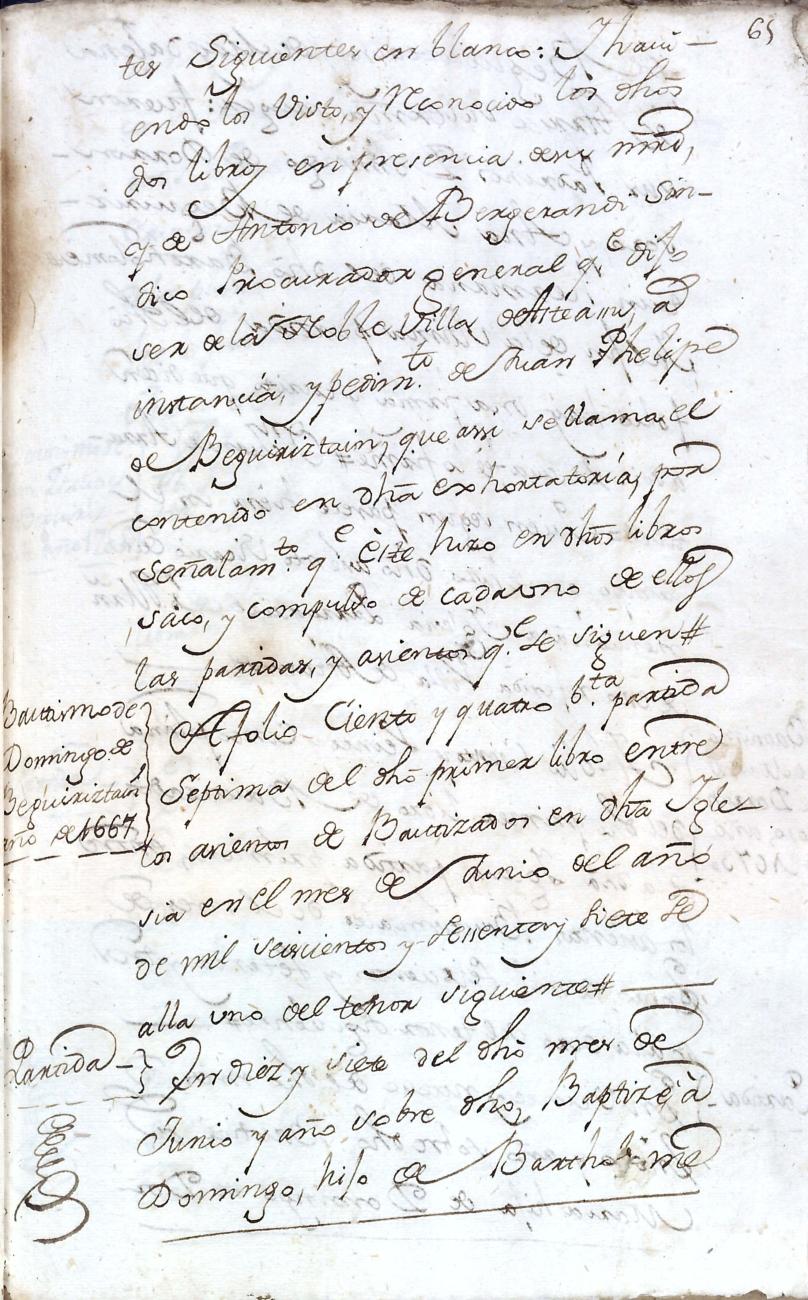 65
tes Siguientes en blanco: I havi-
endolos Visto, y Reconocido los dhos
dos libros en presencia de mi
y de Antonio de Bergerandi Sin-
dico Procurador general q.e dijo
ser de la Noble Villa de Asteasu, a
instancia, y pedim.to de Juan Phelipe
de Beguiriztain, que assi se llama el
contenido en dha exhortatoria, por
señalam.to q.e este hizo en dhos libros
saco, y compulso de cada uno de ellos
las partidas, y asientos q.e se siguen #
Bautismo de
Domingo de
Beguiriztain
año de 1667
A folio Ciento y quatro b.ta partida
Septima del dho primer libro entre
los asientos de Bautizados en dha Igle-
sia en el mes de Junio del año
de mil seiscientos y sessenta y siete se
alla uno del tenor siguiente #
Partida
En diez y siete del dho mes de
Junio y año sobre dho, Baptize à
Domingo, hijo de Bartholome